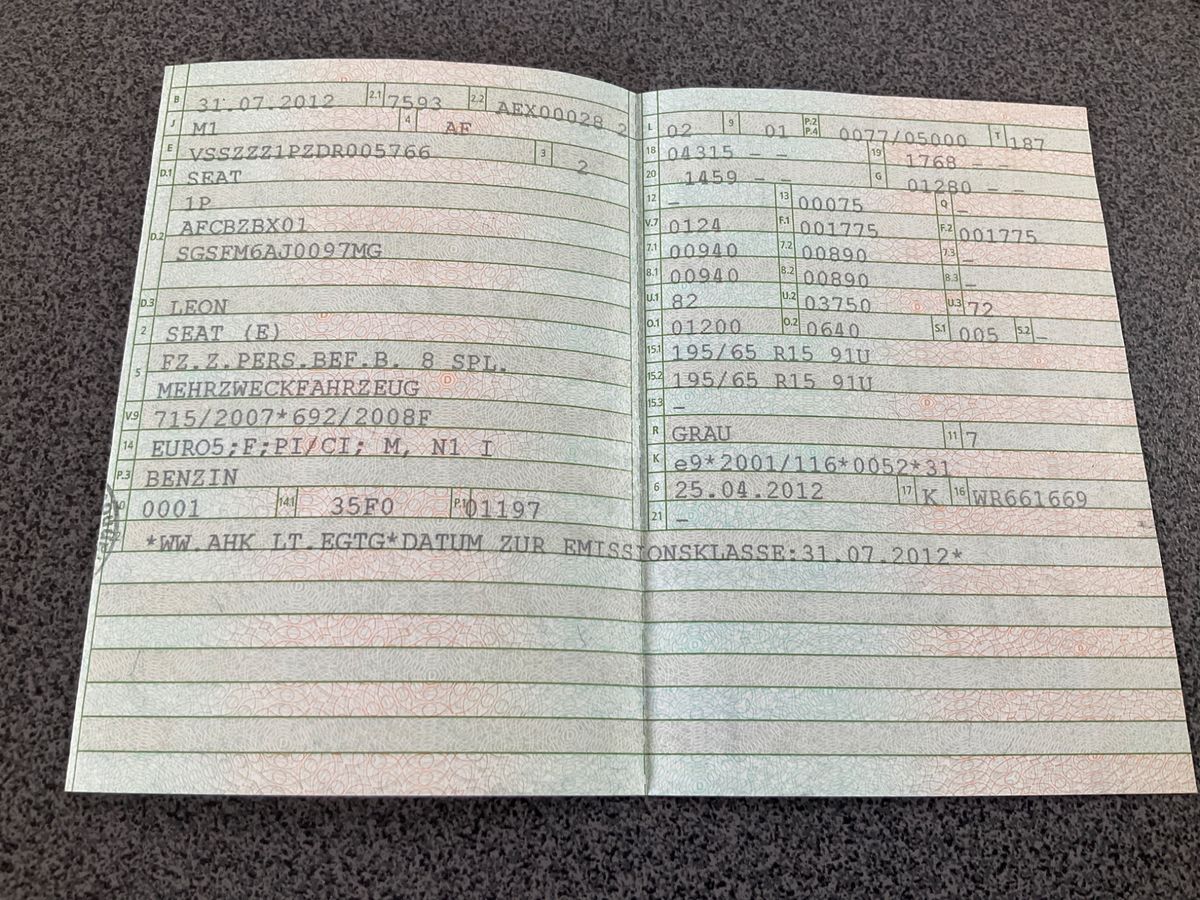 B 31.07.2012 2.1 7593 2.2 AEX00028 2
J M1 4 AF
E VSSZZZ1PZDR005766 3 2
D.1 SEAT
1P
D.2 AFCBZBX01
SGSFM6AJ0097MG
D.3 LEON
2 SEAT (E)
5 FZ.Z.PERS.BEF.B. 8 SPL.
MEHRZWECKFAHRZEUG
V.9 715/2007*692/2008F
14 EURO5;F;PI/CI; M, N1 I
P.3 BENZIN
0001 14.1 35F0 P.1 01197
*WW.AHK LT.EGTG*DATUM ZUR EMISSIONSKLASSE:31.07.2012*
L 02 9 01 P.2 P.4 0077/05000 T 187
18 04315 - - 19 1768 - -
20 1459 - - G 01280 - -
12 - 13 00075 Q -
V.7 0124 F.1 001775 F.2 001775
7.1 00940 7.2 00890 7.3 -
8.1 00940 8.2 00890 8.3 -
U.1 82 U.2 03750 U.3 72
O.1 01200 O.2 0640 S.1 005 S.2 -
15.1 195/65 R15 91U
15.2 195/65 R15 91U
15.3 -
R GRAU 11 7
K e9*2001/116*0052*31
6 25.04.2012 17 K 16 WR661669
21 -